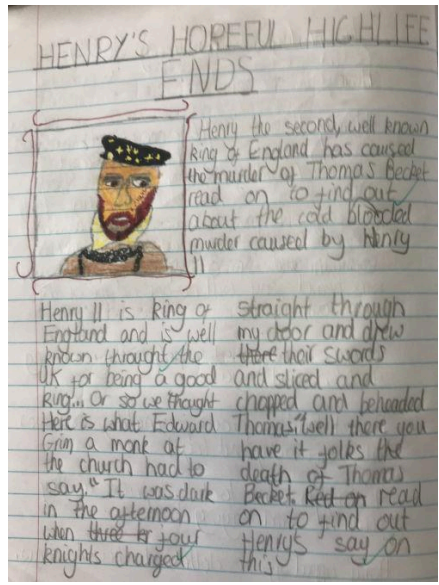 HENRY'S HOREFUL HIGHLIFE
ENDS
Henry the second, well known
king of England has caused
the murder of Thomas Becket
read on to find out
about the cold blooded
murder caused by Henry
II
Henry II is king of
England and is well
known throught the
UK for being a good
king... Or so we thought
Here is what Edward
Grim a monk at
the church had to
say." It was dark
in the afternoon
when three kr four
knights charged
straight through
my door and drew
there their swords
and sliced and
chopped and beheaded
Thomas."well there you
have it folks the
death of Thomas
Becket. Red on read
on to find out
Henrys say on
this